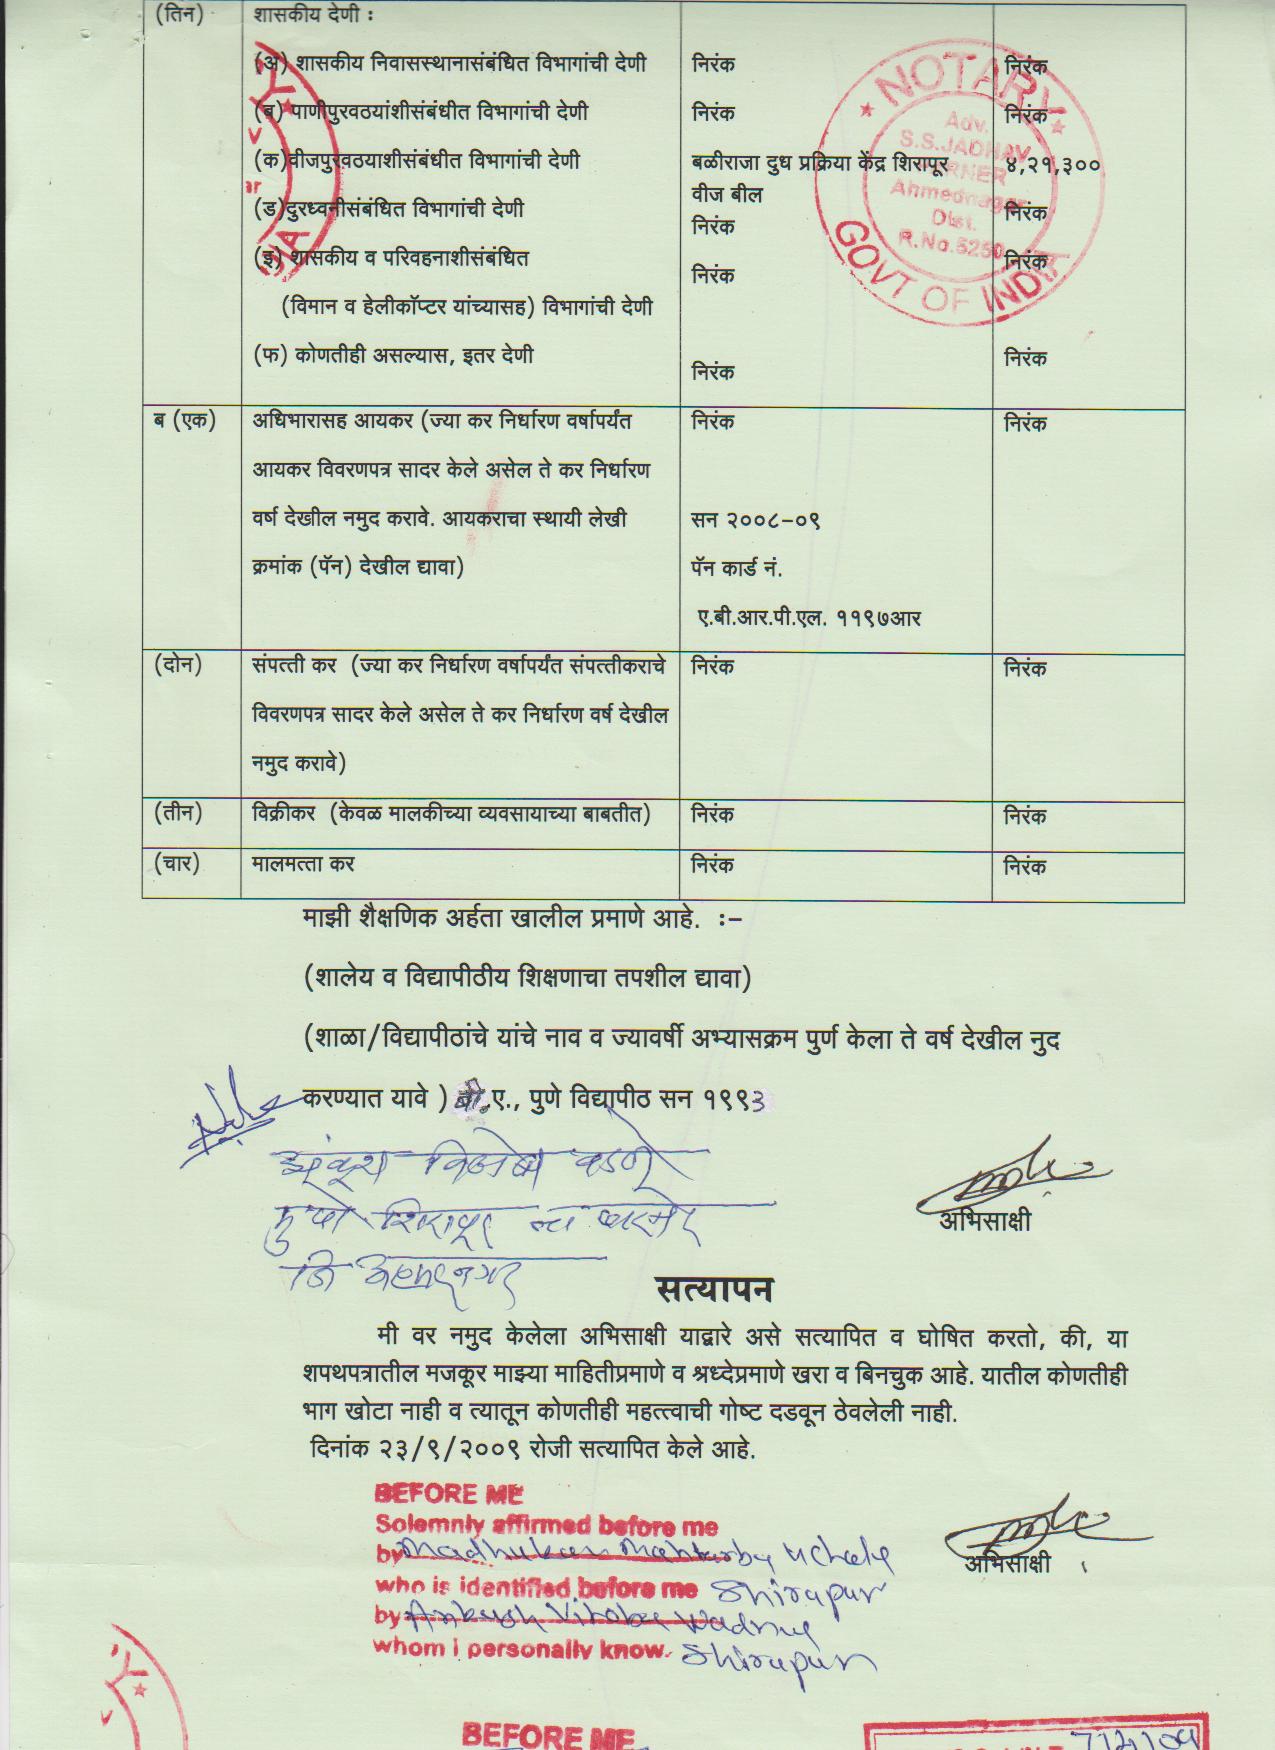 (तिन) शासकीय देणी :
(अ) शासकीय निवासस्थानासंबंधित विभागांची देणी निरंक निरंक
(ब) पाणीपुरवठयांशीसंबंधीत विभागांची देणी निरंक निरंक
(क)वीजपुरवठयाशीसंबंधीत विभागांची देणी बळीराजा दुध प्रक्रिया केंद्र शिरापूर ४,२१,३००
वीज बील
(ड)दुरध्वनीसंबंधित विभागांची देणी निरंक निरंक
(इ) शासकीय व परिवहनाशीसंबंधित निरंक निरंक
(विमान व हेलीकॉप्टर यांच्यासह) विभागांची देणी
(फ) कोणतीही असल्यास, इतर देणी निरंक निरंक
NOTARY
Adv.
S.S.JADHAV
PARNER
Ahmednagar
Dist.
R.No.5250
GOVT OF INDIA
ब (एक) अधिभारासह आयकर (ज्या कर निर्धारण वर्षापर्यंत निरंक निरंक
आयकर विवरणपत्र सादर केले असेल ते कर निर्धारण
वर्ष देखील नमुद करावे. आयकराचा स्थायी लेखी सन २००८-०९
क्रमांक (पॅन) देखील द्यावा) पॅन कार्ड नं.
ए.बी.आर.पी.एल. ११९७आर
(दोन) संपत्ती कर (ज्या कर निर्धारण वर्षापर्यंत संपत्तीकराचे निरंक निरंक
विवरणपत्र सादर केले असेल ते कर निर्धारण वर्ष देखील
नमुद करावे)
(तीन) विक्रीकर (केवळ मालकीच्या व्यवसायाच्या बाबतीत) निरंक निरंक
(चार) मालमत्ता कर निरंक निरंक
माझी शैक्षणिक अर्हता खालील प्रमाणे आहे. :-
(शालेय व विद्यापीठीय शिक्षणाचा तपशील द्यावा)
(शाळा/विद्यापीठांचे यांचे नाव व ज्यावर्षी अभ्यासक्रम पुर्ण केला ते वर्ष देखील नुद
करण्यात यावे ) बी.ए., पुणे विद्यापीठ सन १९९३
अंकुश विठोबा वडणे
मु पो शिरापूर ता पारनेर
जि अहमदनगर
अभिसाक्षी
सत्यापन
मी वर नमुद केलेला अभिसाक्षी याद्वारे असे सत्यापित व घोषित करतो, की, या
शपथपत्रातील मजकूर माझ्या माहितीप्रमाणे व श्रध्देप्रमाणे खरा व बिनचुक आहे. यातील कोणतीही
भाग खोटा नाही व त्यातून कोणतीही महत्त्वाची गोष्ट दडवून ठेवलेली नाही.
दिनांक २३/९/२००९ रोजी सत्यापित केले आहे.
BEFORE ME
Solemnly affirmed before me
by Madhukar
who is identified before me Shirapur
by Ankush Vitoba
whom i personally know. Shirapur
अभिसाक्षी
BEFORE ME